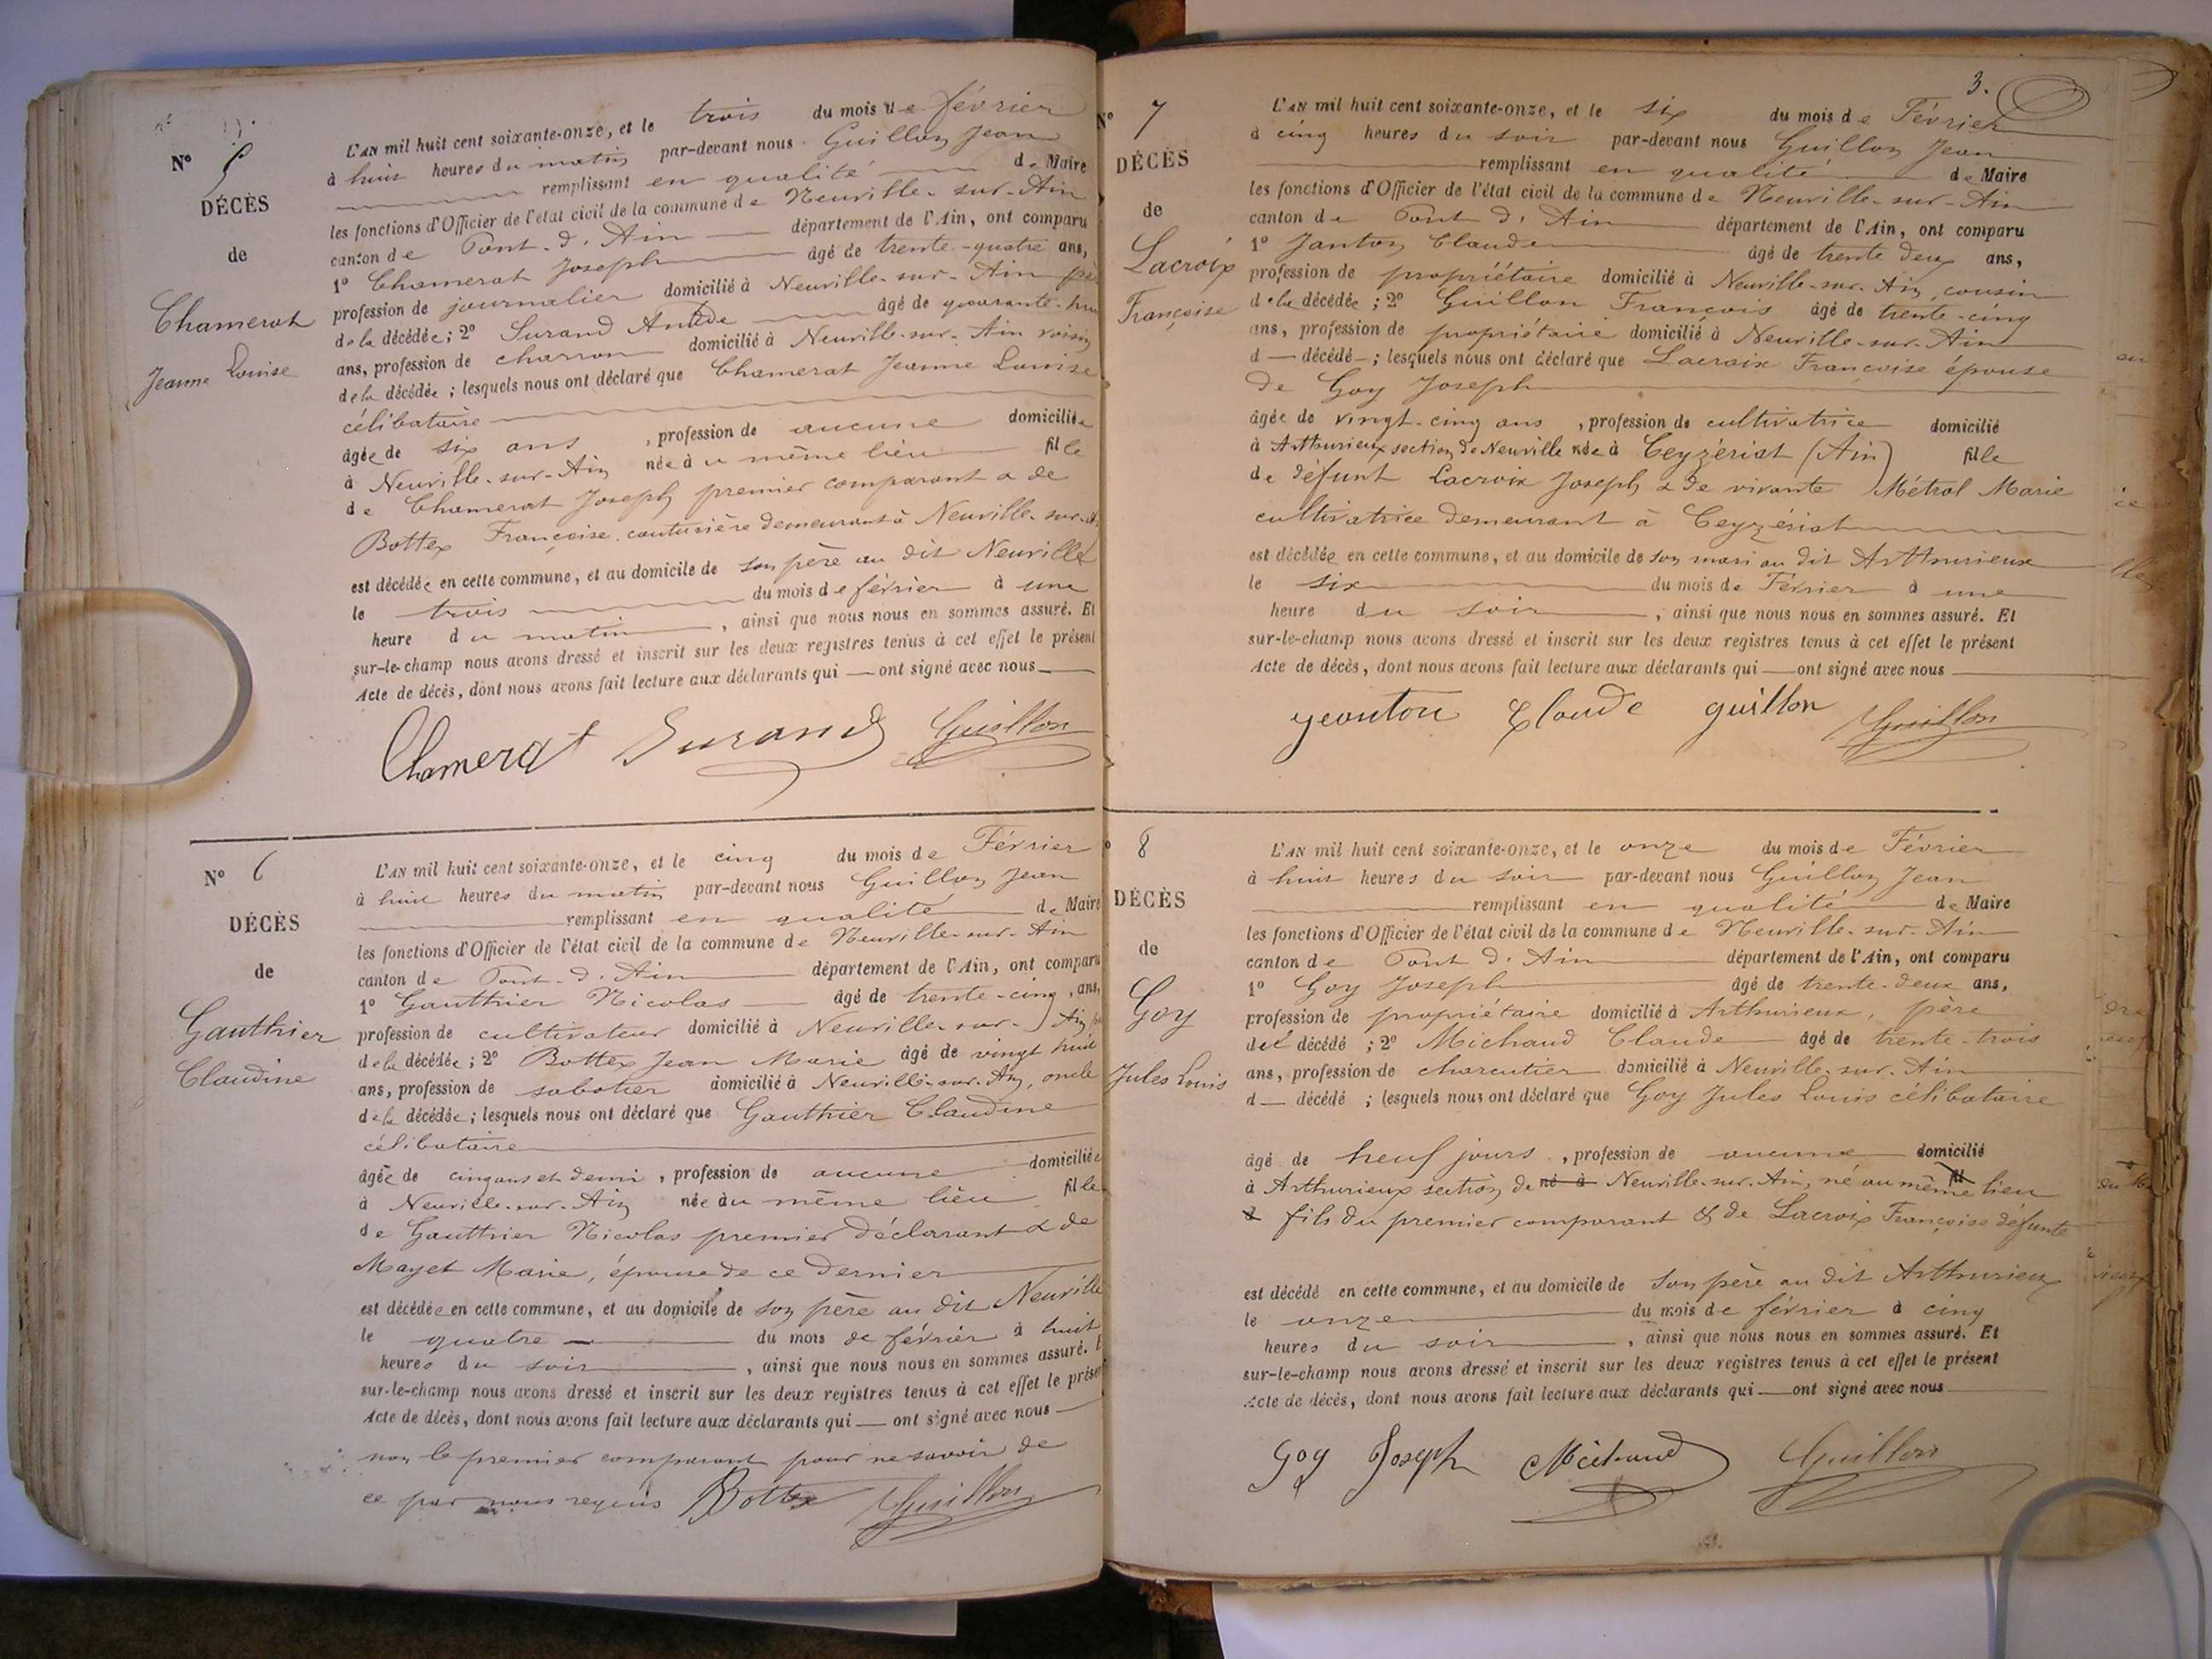 N° 5
DÉCÈS
de
Chamerat
Jeanne Louise
L'AN mil huit cent soixante-onze, et le trois du mois de février
à huit heures du matin par-devant nous Guillon Jean
remplissant en qualité de Maire
les fonctions d'Officier de l'état civil de la commune de Neuville-sur-Ain
canton de Pont-d'Ain département de l'Ain, ont comparu
1° Chamerat Joseph âgé de trente-quatre ans,
profession de journalier domicilié à Neuville-sur-Ain
de la décédée ; 2° Durand Antide âgé de quarante-
ans, profession de charron domicilié à Neuville-sur-Ain voisin
de la décédée ; lesquels nous ont déclaré que Chamerat Jeanne Louise
célibataire
âgée de six ans , profession de aucune domiciliée
à Neuville-sur-Ain née à u même lieu fille
de Chamerat Joseph premier comparant & de
Bottex Françoise couturière demeurant à Neuville-sur-
est décédée en cette commune, et au domicile de son père au dit Neuville
le trois du mois de février à une
heure du matin , ainsi que nous nous en sommes assuré. Et
sur-le-champ nous avons dressé et inscrit sur les deux registres tenus à cet effet le présent
Acte de décès, dont nous avons fait lecture aux déclarants qui — ont signé avec nous
Chamerat Durand Guillon
N° 6
DÉCÈS
de
Gauthier
Claudine
L'AN mil huit cent soixante-onze, et le cinq du mois de Février
à huit heures du matin par-devant nous Guillon Jean
remplissant en qualité de Maire
les fonctions d'Officier de l'état civil de la commune de Neuville-sur-Ain
canton de Pont-d'Ain département de l'Ain, ont comparu
1° Gauthier Nicolas âgé de trente-cinq ans,
profession de cultivateur domicilié à Neuville-sur-Ain
de la décédée ; 2° Bottex Jean Marie âgé de vingt huit
ans, profession de sabotier domicilié à Neuville-sur-Ain, oncle
de la décédée ; lesquels nous ont déclaré que Gauthier Claudine
célibataire
âgée de cinq ans et demi , profession de aucune domiciliée
à Neuville-sur-Ain née au même lieu fille
de Gauthier Nicolas premier déclarant & de
Mayet Marie, épouse de ce dernier
est décédée en cette commune, et au domicile de son père au dit Neuville
le quatre du mois de février à huit
heures du soir , ainsi que nous nous en sommes assuré. E
sur-le-champ nous avons dressé et inscrit sur les deux registres tenus à cet effet le présen
Acte de décès, dont nous avons fait lecture aux déclarants qui — ont signé avec nous
non le premier comparant pour ne savoir de
ce par nous requis Bottex Guillon
3.
N° 7
DÉCÈS
de
Lacroix
Françoise
L'AN mil huit cent soixante-onze, et le six du mois de Février
à cinq heures du soir par-devant nous Guillon Jean
remplissant en qualité de Maire
les fonctions d'Officier de l'état civil de la commune de Neuville-sur-Ain
canton de Pont d'Ain département de l'Ain, ont comparu
1° Janton Claude âgé de trente deux ans,
profession de propriétaire domicilié à Neuville-sur-Ain, cousin
de la décédée ; 2° Guillon François âgé de trente-cinq
ans, profession de propriétaire domicilié à Neuville-sur-Ain
d — décédé — ; lesquels nous ont déclaré que Lacroix Françoise épouse
de Goy Joseph
âgée de vingt-cinq ans , profession de cultivatrice domicilié
à Arthurieux section de Neuville née à Ceyzériat (Ain) fille
de défunt Lacroix Joseph & de vivante Métral Marie
cultivatrice demeurant à Ceyzériat
est décédée en cette commune, et au domicile de son mari au dit Arthurieux
le six du mois de Février à une
heure du soir , ainsi que nous nous en sommes assuré. Et
sur-le-champ nous avons dressé et inscrit sur les deux registres tenus à cet effet le présent
Acte de décès, dont nous avons fait lecture aux déclarants qui — ont signé avec nous
Jeanton Claude guillon Guillon
8
DÉCÈS
de
Goy
Jules Louis
L'AN mil huit cent soixante-onze, et le onze du mois de Février
à huit heures du soir par-devant nous Guillon Jean
remplissant en qualité de Maire
les fonctions d'Officier de l'état civil de la commune de Neuville-sur-Ain
canton de Pont d'Ain département de l'Ain, ont comparu
1° Goy Joseph âgé de trente-deux ans,
profession de propriétaire domicilié à Arthurieux, père
del décédé ; 2° Michaud Claude âgé de trente-trois
ans, profession de charcutier domicilié à Neuville-sur-Ain
d — décédé ; lesquels nous ont déclaré que Goy Jules Louis célibataire
âgé de neuf jours , profession de aucune domicilié
à Arthurieux section de né à Neuville-sur-Ain, né au même lieu
fils du premier comparant & de Lacroix Françoise défunte
est décédé en cette commune, et au domicile de son père au dit Arthurieux
le onze du mois de février à cinq
heures du soir , ainsi que nous nous en sommes assuré. Et
sur-le-champ nous avons dressé et inscrit sur les deux registres tenus à cet effet le présent
Acte de décès, dont nous avons fait lecture aux déclarants qui — ont signé avec nous
Goy Joseph Michaud Guillon